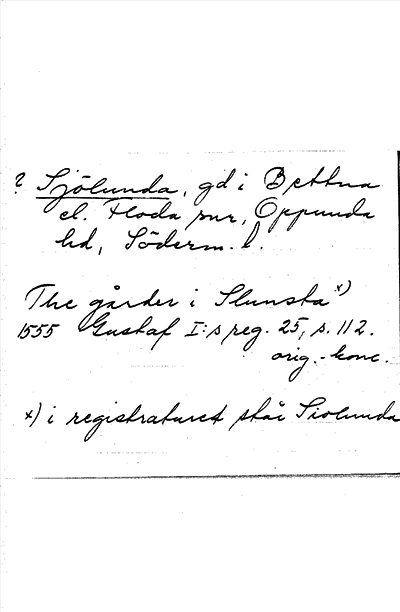 ? Sjölunda, gd i Bettna
el. Floda snr, Oppunda
hd, Söderm. l.
The gårder i Slunsta x)
1555 Gustaf I:s reg. 25, s. 112.
orig.-konc.
x) i registraturet står Siolunda